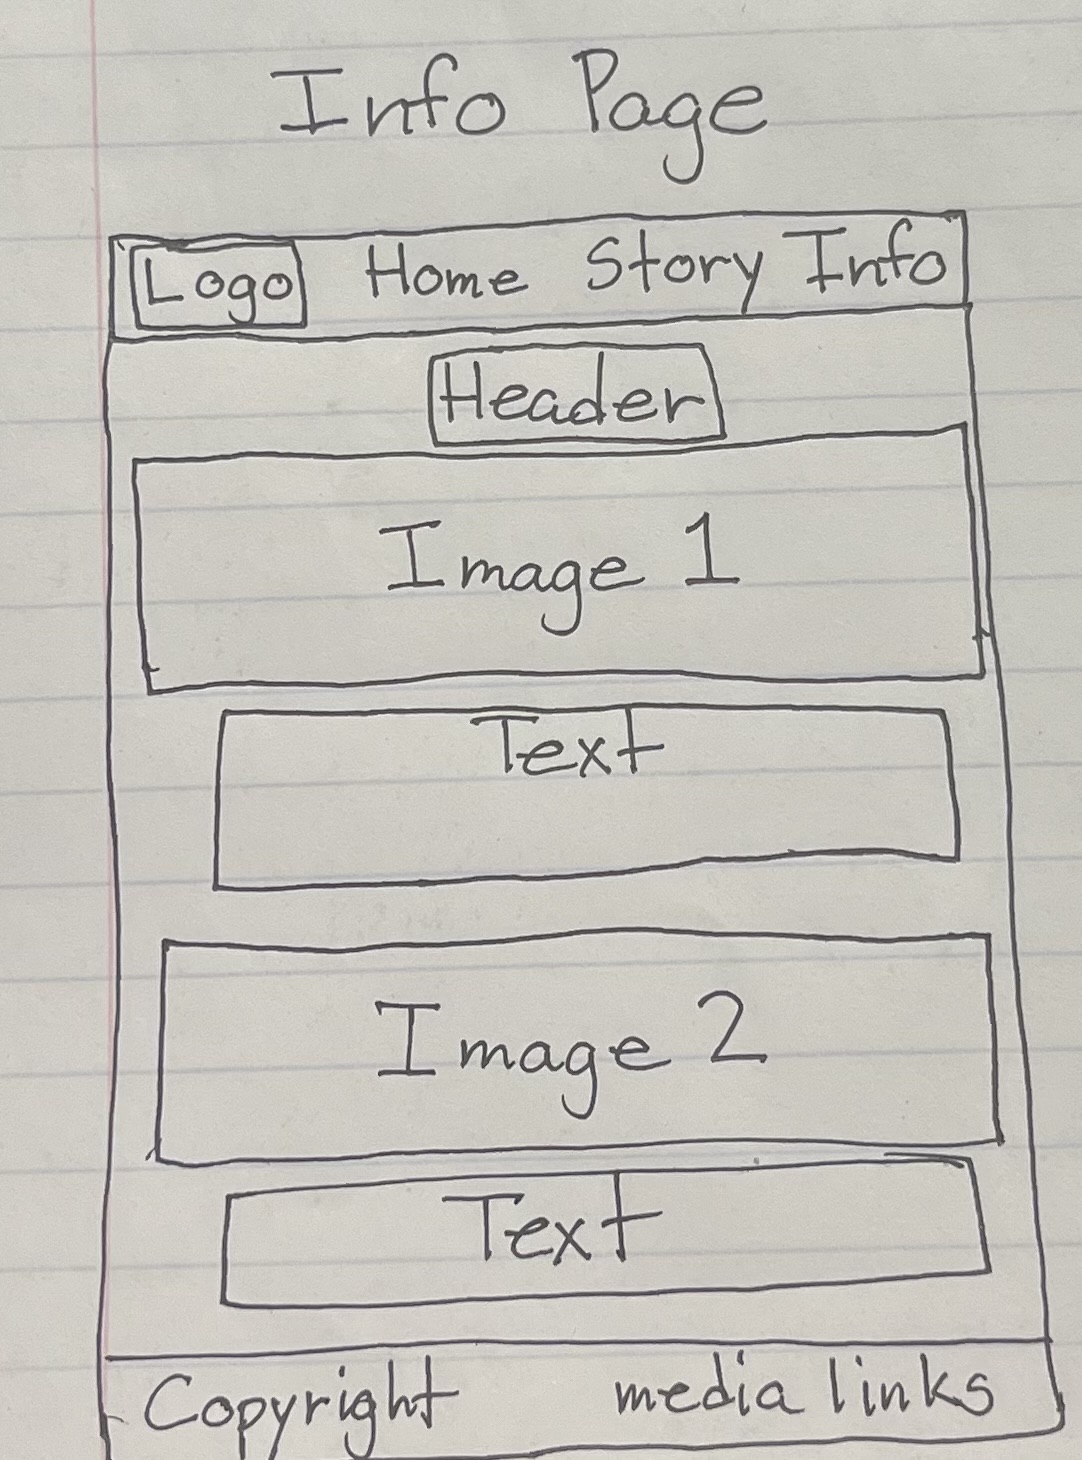 Info Page
Logo Home Story Info
Header
Image 1
Text
Image 2
Text
Copyright media links